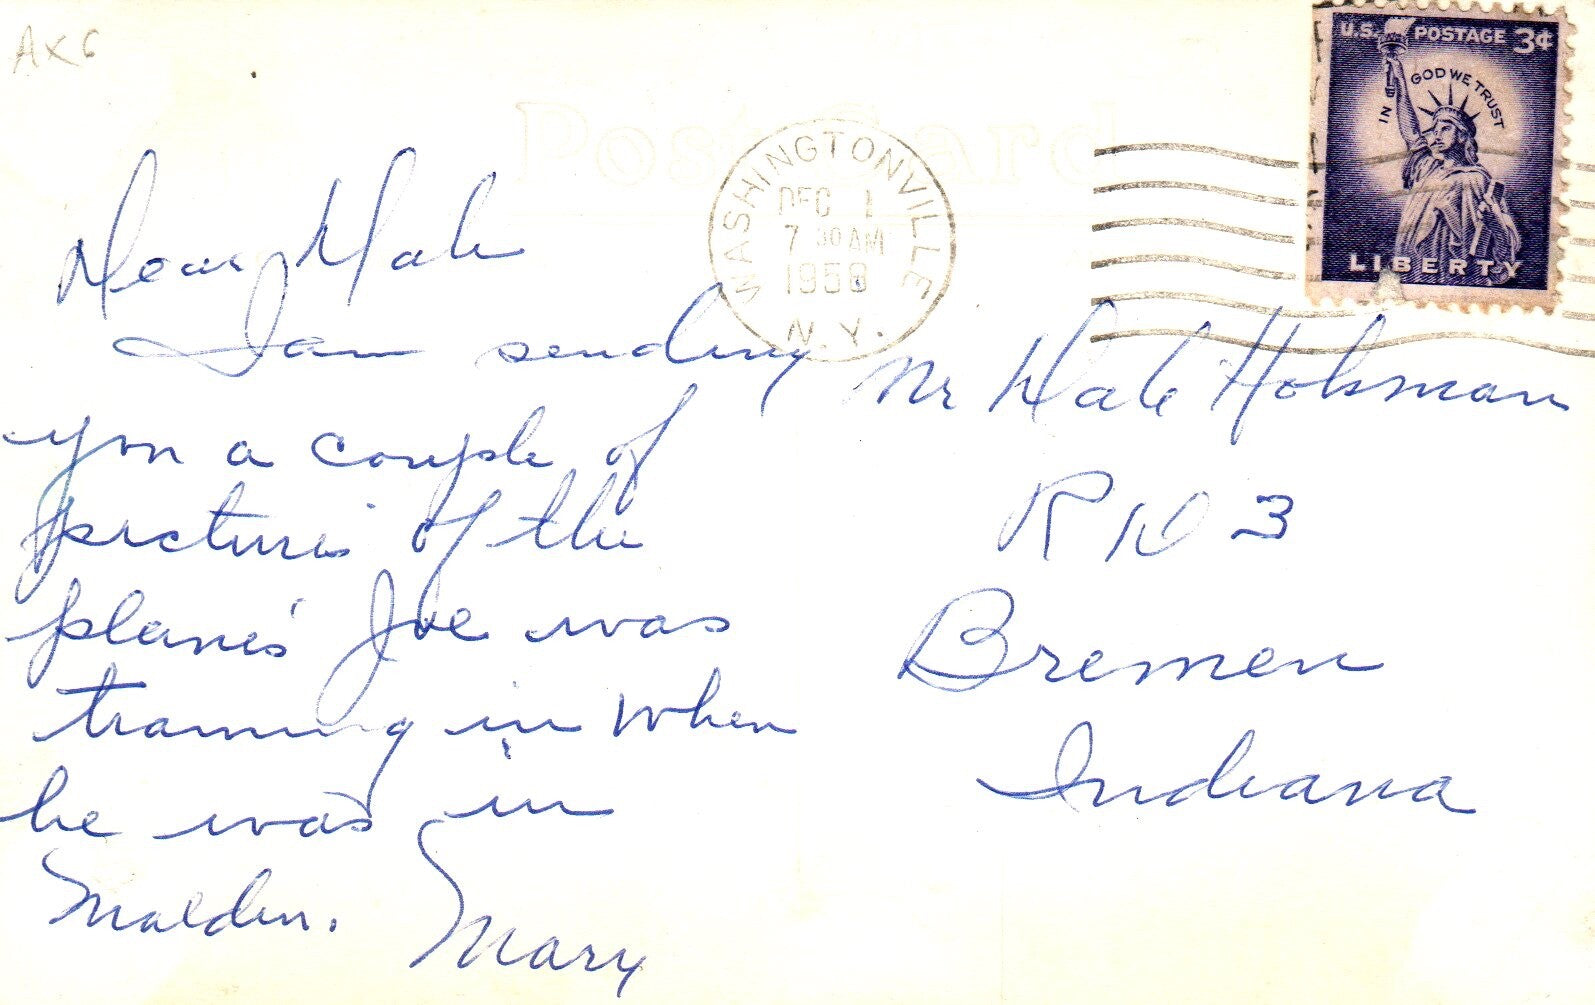 AX6
Post Card
U.S. POSTAGE 3¢
IN GOD WE TRUST
LIBERTY
WASHINGTONVILLE
DEC 1
7 30 AM
N.Y.
Dear Dale
I am sending
you a couple of
pictures of the
planes Joe was
training in when
he was in
Malden.
Mary
Mr Dale
R D 3
Bremen
Indiana